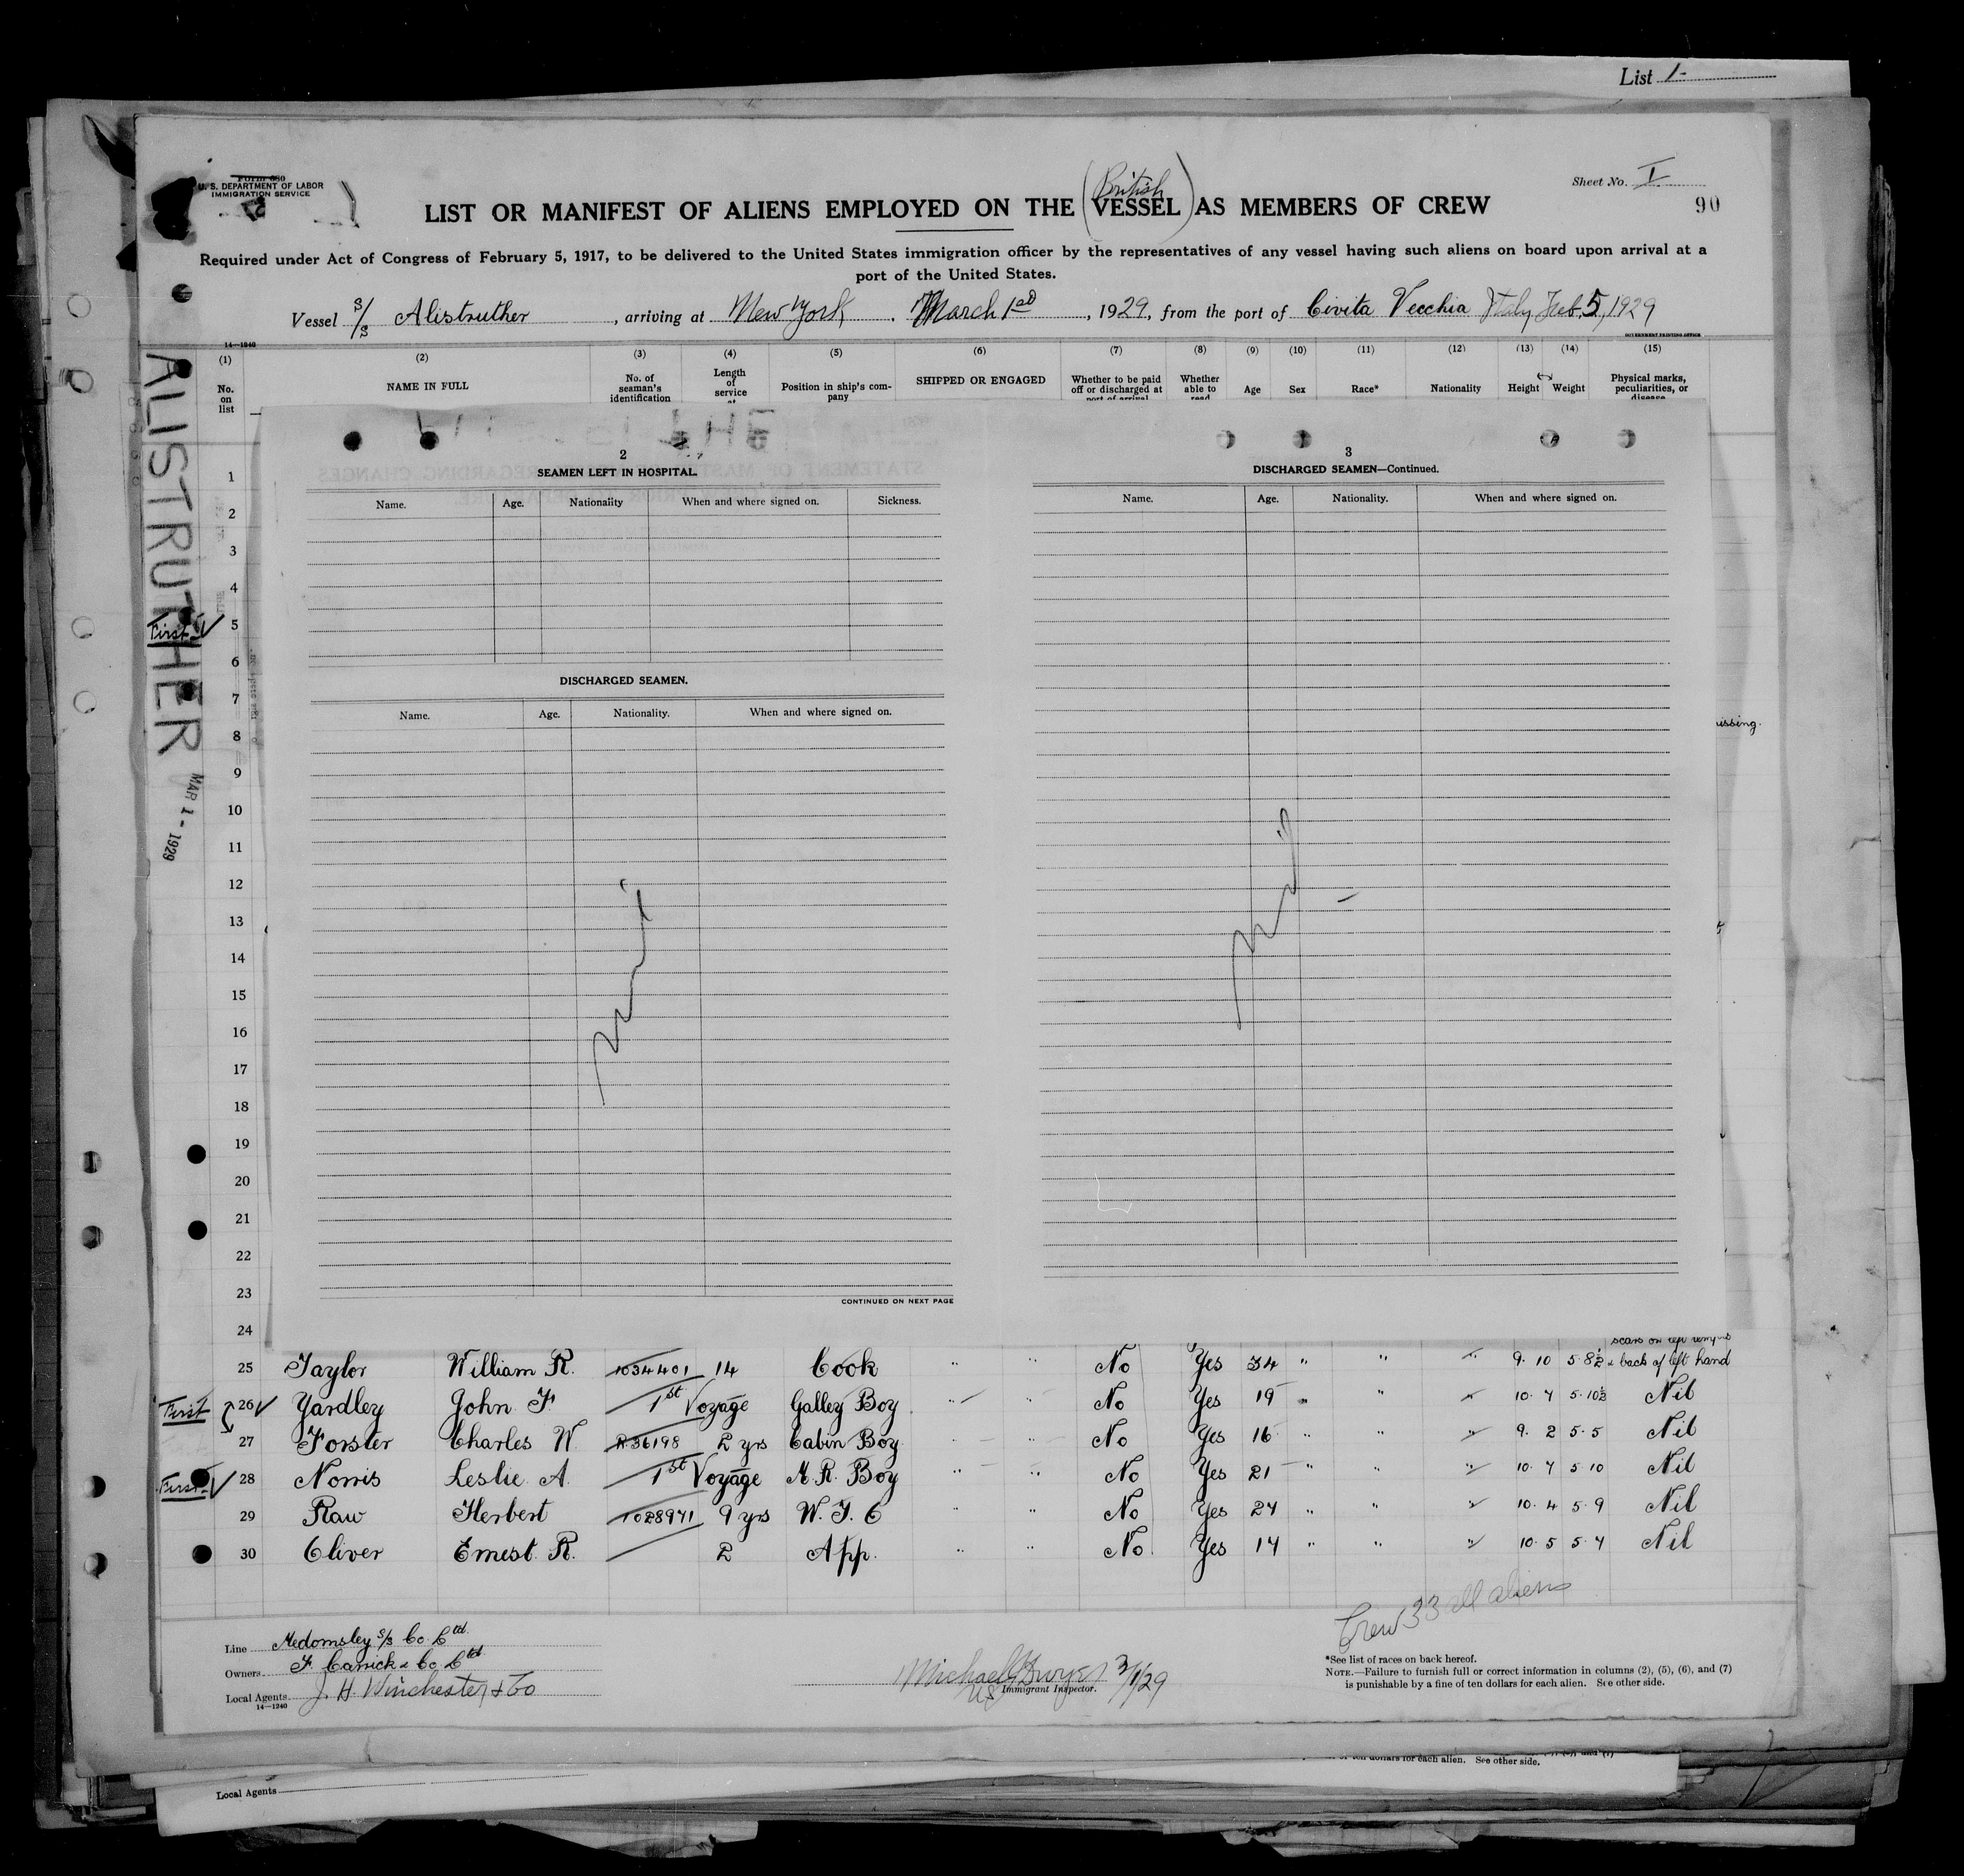 List 1-
Form 680
U. S. DEPARTMENT OF LABOR
IMMIGRATION SERVICE
Sheet No. I
90
(British)
LIST OR MANIFEST OF ALIENS EMPLOYED ON THE VESSEL AS MEMBERS OF CREW
Required under Act of Congress of February 5, 1917, to be delivered to the United States immigration officer by the representatives of any vessel having such aliens on board upon arrival at a
port of the United States.
Vessel S/S Alistruther, arriving at New York. March 1st, 1929, from the port of Civita Vecchia Italy Feb. 5, 1929
14—1240
GOVERNMENT PRINTING OFFICE
(1) (2) (3) (4) (5) (6) (7) (8) (9) (10) (11) (12) (13) (14) (15)
No. on list
NAME IN FULL
No. of seaman's identification
Length of service at
Position in ship's company
SHIPPED OR ENGAGED
Whether to be paid off or discharged at port of arrival
Whether able to read
Age
Sex
Race*
Nationality
Height
Weight
Physical marks, peculiarities, or disease
ALISTRUTHER
MAR 1 - 1929
1
2
3
4
First 5
6
7
8
9
10
11
12
13
14
15
16
17
18
19
20
21
22
23
24
2
SEAMEN LEFT IN HOSPITAL.
Name. Age. Nationality When and where signed on. Sickness.
DISCHARGED SEAMEN.
Name. Age. Nationality. When and where signed on.
CONTINUED ON NEXT PAGE
3
DISCHARGED SEAMEN—Continued.
Name. Age. Nationality. When and where signed on.
issing.
scars on left
25 Taylor William R. 1034401 14 Cook " " No Yes 34 " " " 9. 10 5. 8½ & back of left hand
First 26 Yardley John F. 1st Voyage Galley Boy " " No Yes 19 " " " 10. 7 5. 10½ Nil
27 Forster Charles W. R36198 2 yrs Cabin Boy " " No Yes 16 " " " 9. 2 5. 5 Nil
First 28 Norris Leslie A. 1st Voyage M. R. Boy " " No Yes 21 " " " 10. 7 5 10 Nil
29 Raw Herbert 1028971 9 yrs W. T. O " " No Yes 27 " " " 10. 4 5. 9 Nil
30 Oliver Ernest R. 2 App. " " No. Yes 17 " " " 10. 5 5. 7 Nil
Crew 33 all aliens
Line Medomsley S/S Co. Ltd.
Owners F. Carrick & Co. Ltd
Local Agents J. H. Winchester & Co
14—1240
Michael Dwyer 3/1/29
US Immigrant Inspector.
*See list of races on back hereof.
NOTE.—Failure to furnish full or correct information in columns (2), (5), (6), and (7)
is punishable by a fine of ten dollars for each alien. See other side.
of ten dollars for each alien. See other side.
Local Agents